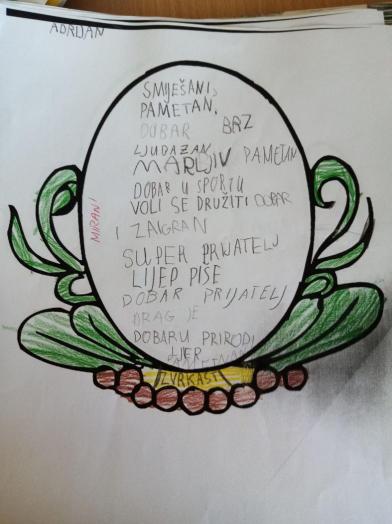 ADRIJAN
SMJEŠANI,
PAMETAN,
DOBAR BRZ
LJUBAZAN
MARLJIV PAMETAN
DOBAR U SPORTU
VOLI SE DRUŽITI DOBAR
I ZAIGRAN
MIRANI
SUPER PRIJATELJ
LIJEP PIŠE
DOBAR PRIJATELJ
DRAG JE
DOBAR U PRIRODI
LIJEP
PAMETNAN
ZVRKASTI